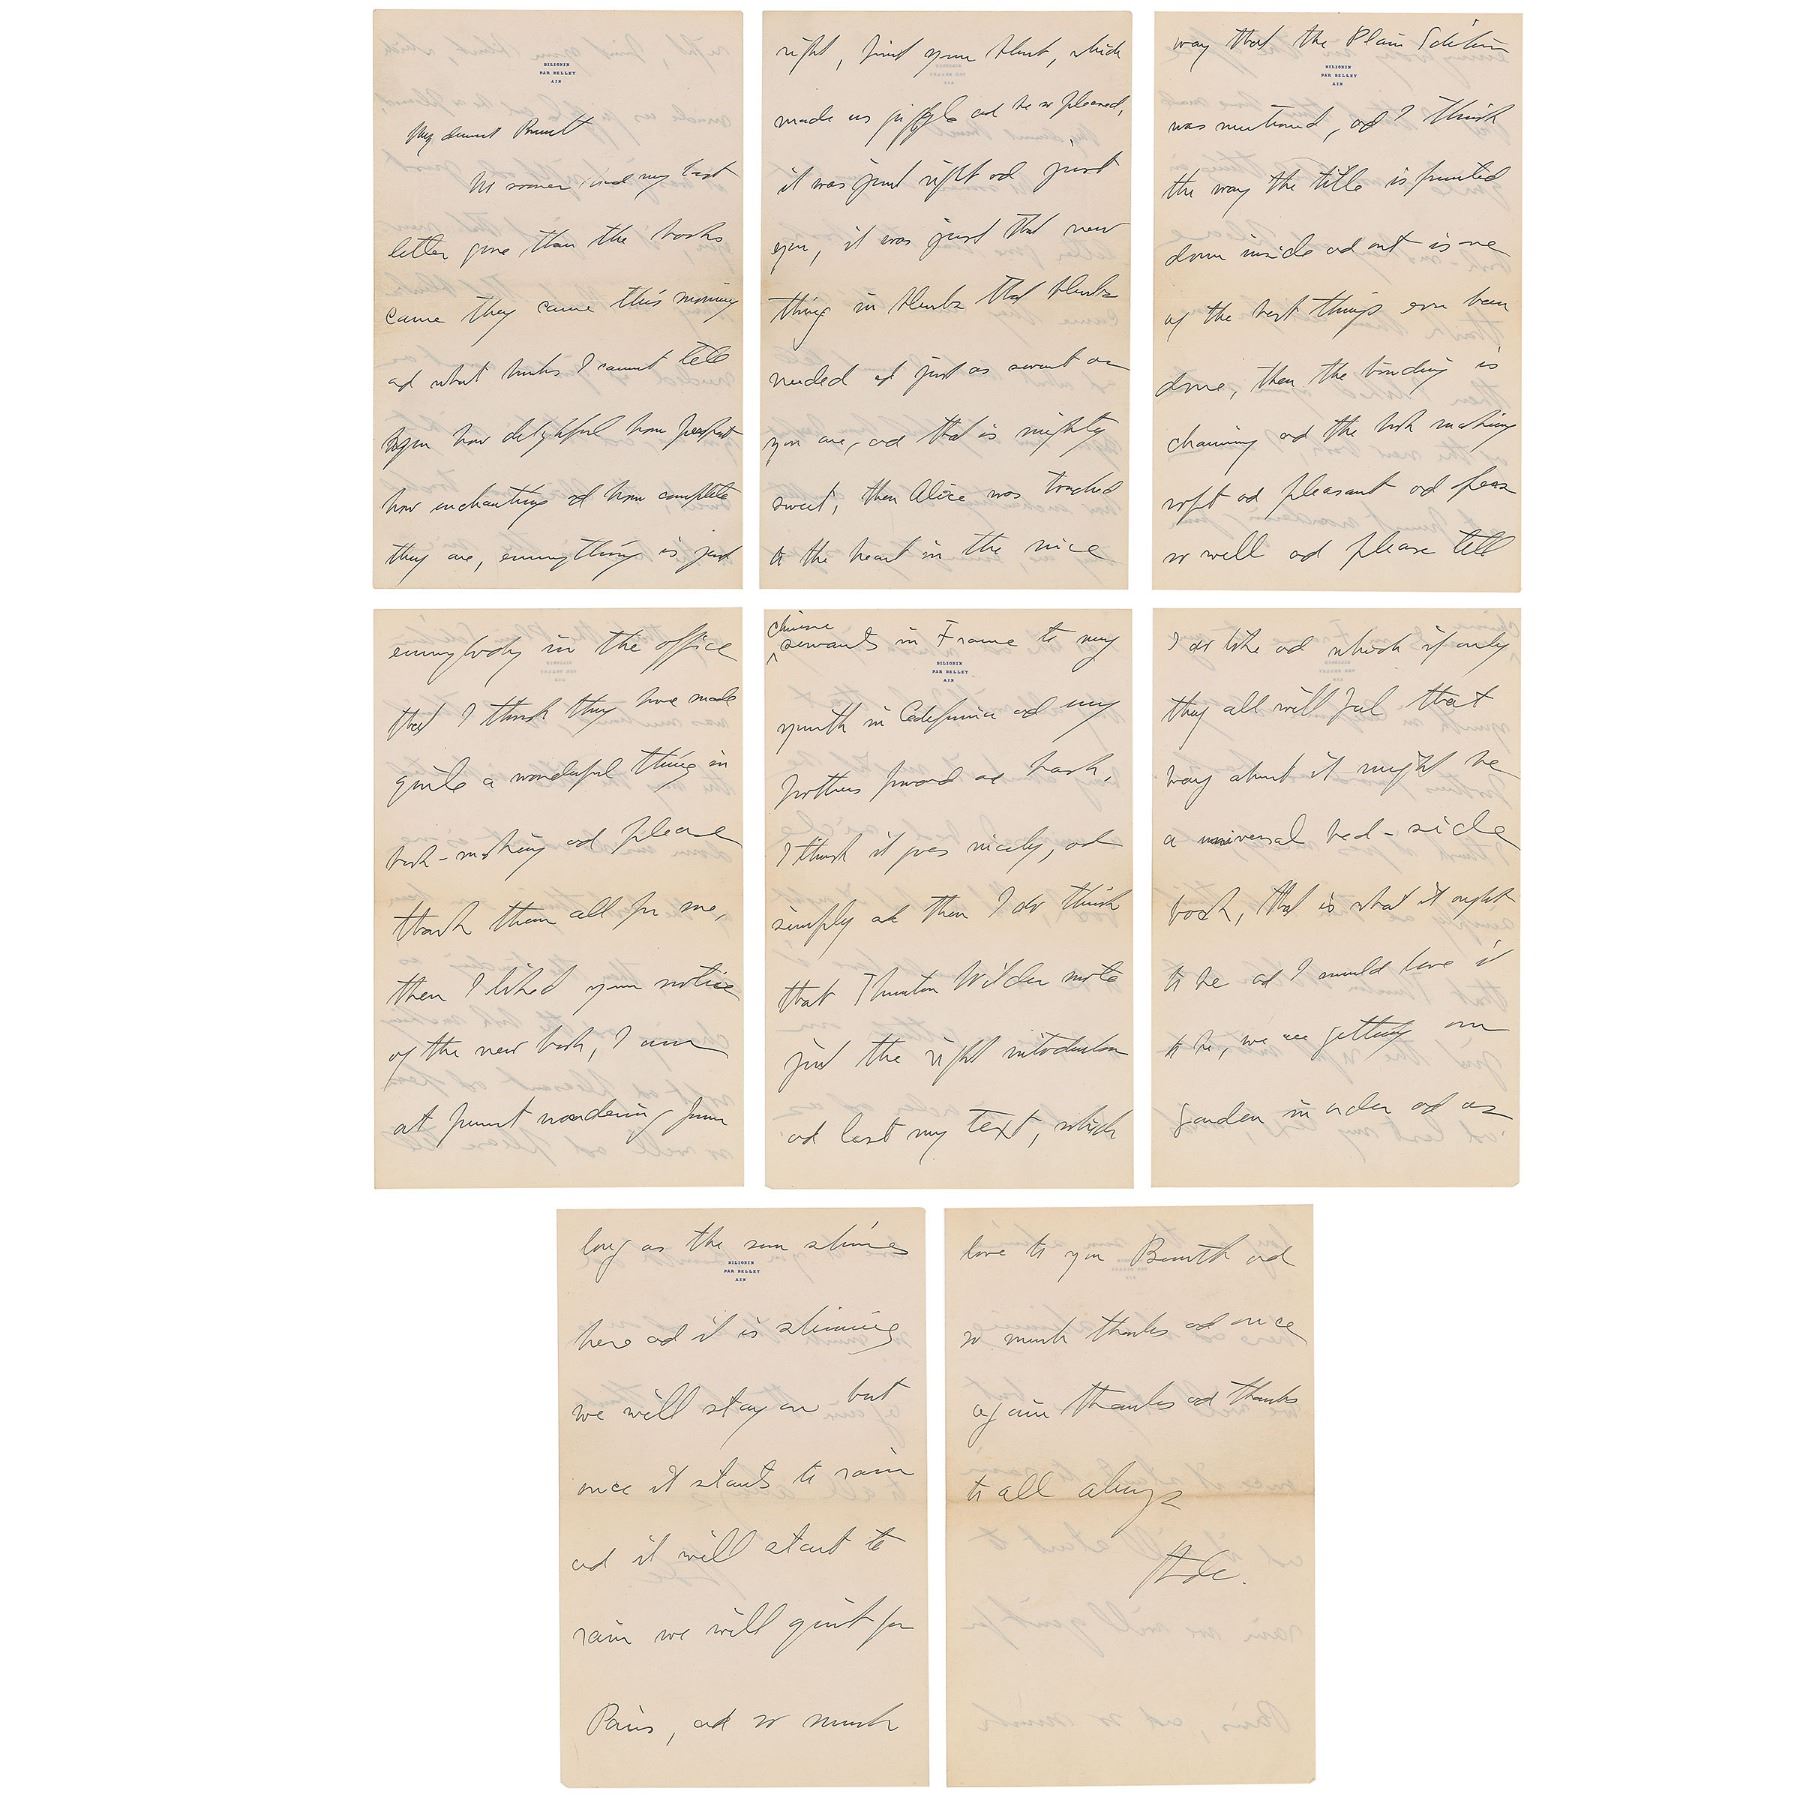 BILIGNIN
PAR BELLEY
AIN
My dearest Bennett
No sooner had my last
letter gone than the books
came they came this morning
and what books I cannot tell
you how delightful how perfect
how enchanting and how complete
they are, everything is just
right, first your blurb, which
made us giggle and be so pleased,
it was just right and just
you, it was just that new
thing in blurbs that blurbs
needed and just as sweet as
you are, and that is mighty
sweet, then Alice was touched
to the heart in the nice
way that the Plain Edition
BILIGNIN
PAR BELLEY
AIN
was mentioned, and I think
the way the title is printed
down inside and out is one
of the best things ever been
done, then the binding is
charming and the book making
soft and pleasant and
so well and please tell
everybody in the office
that I think they have made
quite a wonderful thing in
book-making and please
thank them all for me,
then I liked your notice
of the new book, I am
at present wandering from
Chinese
servants in France to my
BILIGNIN
PAR BELLEY
AIN
youth in California and my
brothers forward and back,
I think it goes nicely, and
simply and then I do think
that Thornton Wilder wrote
just the right introduction
and last my text, which
I do like and which if only
they all will feel that
way about it might be
a universal bed-side
book, that is what it ought
to be and I would love it
to be, we are getting our
garden in order and as
long as the sun shines
BILIGNIN
PAR BELLEY
AIN
here and it is shining
we will stay on but
once it starts to rain
and it will start to
rain we will quit for
Paris, and so much
love to you Bennett and
so much thanks and once
again thanks and thanks
to all always
Gtde.